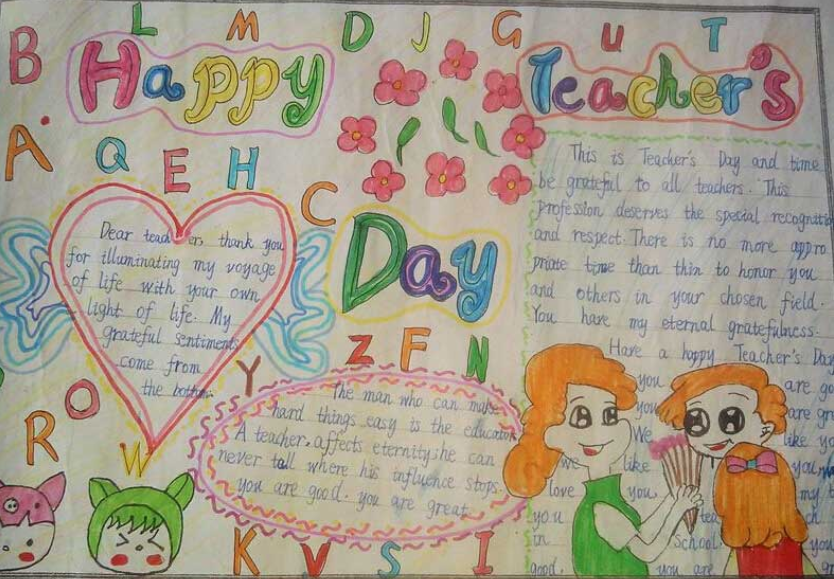 L M D J G U T
B
Happy
Teacher's
A
Q E H
C
Day
Dear teachers thank you
for illuminating my voyage
of life with your own
light of life. My
grateful sentiments
come from
the bottom.
This is Teacher's Day and time
be grateful to all teachers. This
profession deserves the special
and respect. There is no more appro
priate time than thin to honor you
and others in your chosen field.
You have my eternal gratefulness.
Have a happy Teacher's Day
Z F N
Y
O
R
W
The man who can make
hard things easy is the educator
A teacher affects eternity: he can
never tell where his influence stops.
you are good. you are great
you are
you are
We like
we like you
love you my
you
in School you
good. you are
K V S I